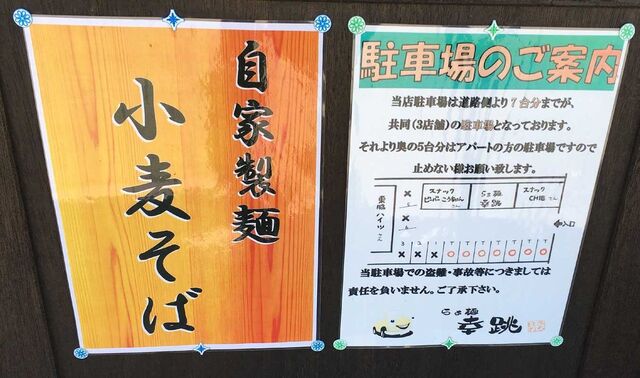 自家製麺
小麦そば
駐車場のご案内
当店駐車場は道路側より7台分までが、
共同(3店舗)の駐車場となっております。
それより奥の5台分はアパートの方の駐車場ですので
止めない様お願い致します。
スナック
らぁ麺
幸跳
スナック
さん
ハイツ
入口
当駐車場での盗難・事故等につきましては
責任を負いません。ご了承下さい。
らぁ麺
幸跳